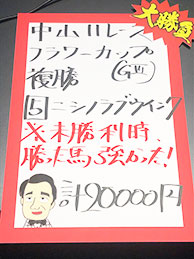 大勝負
中山11レース
フラワーカップ
(GⅢ)
複勝
5 ニシノラブウインク
※未勝利時、
勝った馬強かった!
計20000円